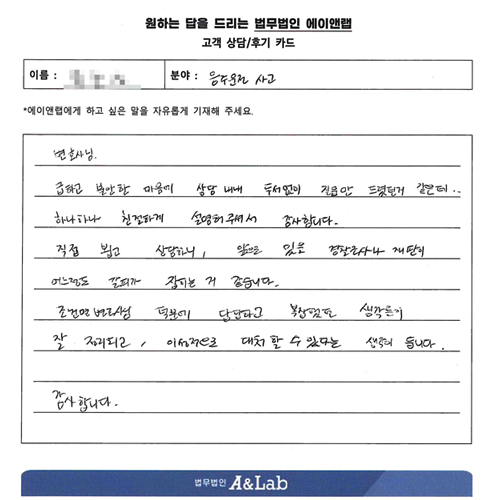 원하는 답을 드리는 법무법인 에이앤랩
고객 상담/후기 카드
이름 :
분야 : 음주운전 사고
*에이앤랩에게 하고 싶은 말을 자유롭게 기재해 주세요.
변호사님.
급하고 불안한 마음에 상담 내내 두서없이 질문만 드렸던거 같은데..
하나하나 친절하게 설명해주셔서 감사합니다.
직접 뵙고 상담하니, 앞으로 있을 경찰조사나 재판의
어느정도 갈피가 잡히는 거 같습니다.
조건명변호사님 덕분에 답답하고 복잡했던 생각들이
잘 정리되고, 이성적으로 대처 할 수 있겠다는 생각이 듭니다.
감사합니다.
법무법인 A&Lab